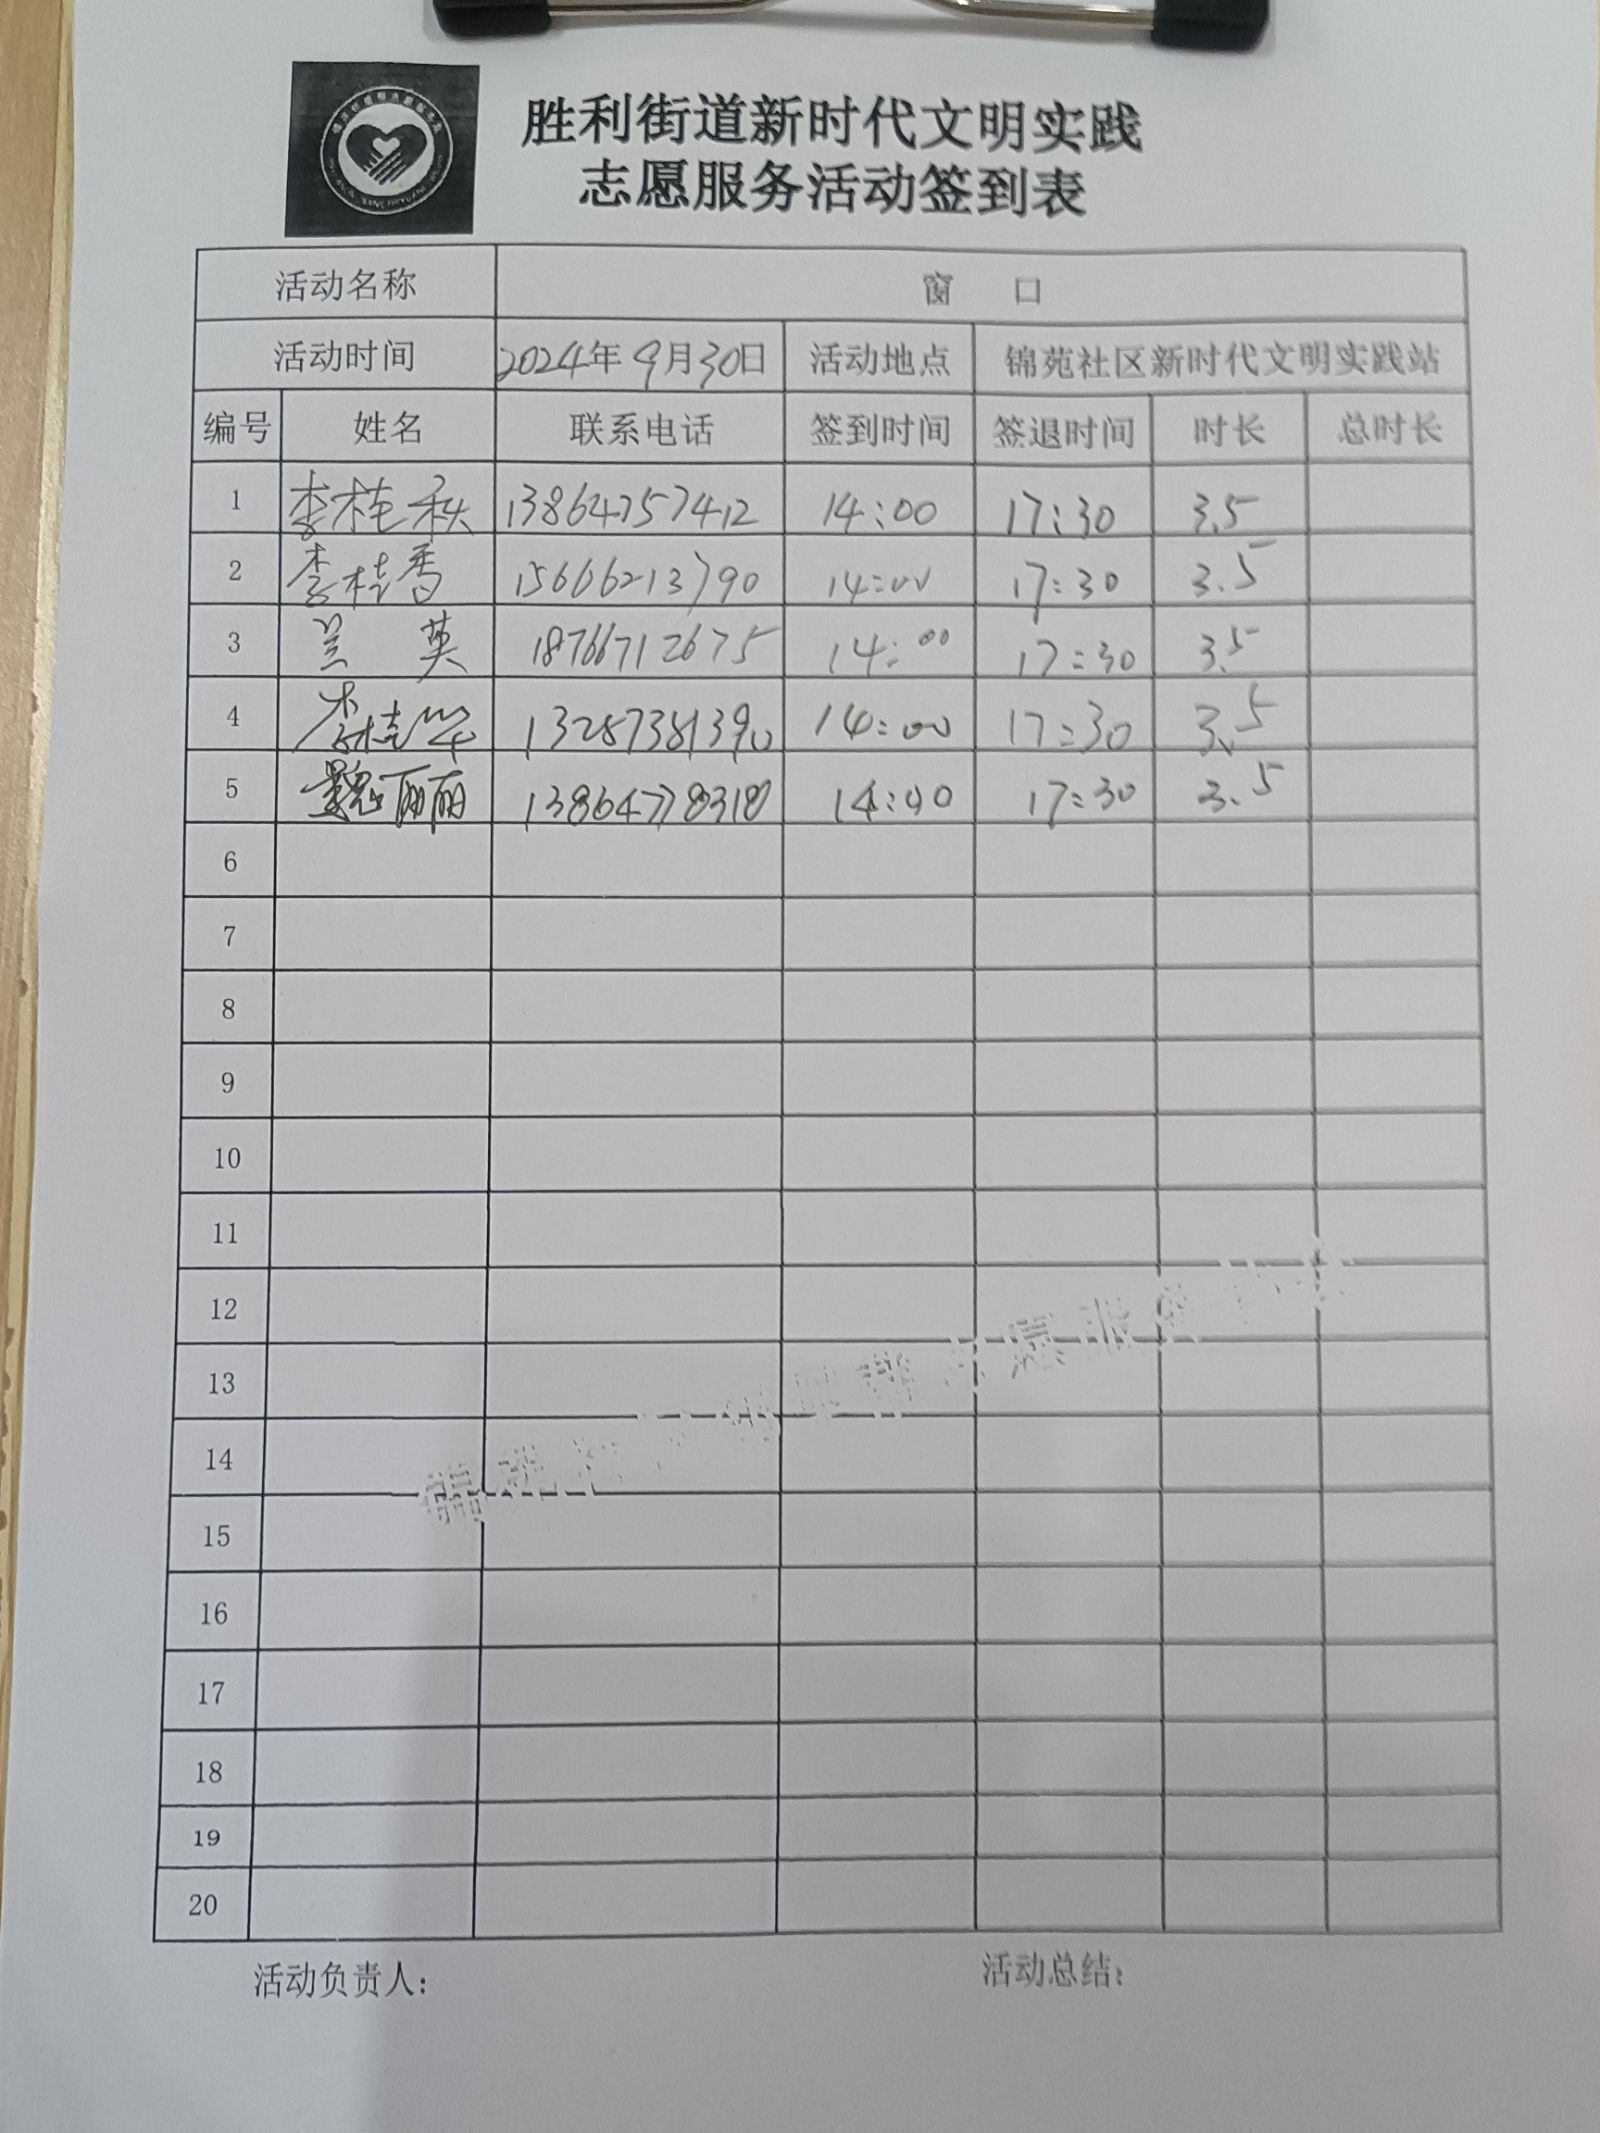 胜利街道新时代文明实践
志愿服务活动签到表
活动名称 窗 口
活动时间 2024年9月30日 活动地点 锦苑社区新时代文明实践站
编号 姓名 联系电话 签到时间 签退时间 时长 总时长
1 李桂秋 13864757412 14:00 17:30 3.5
2 李桂香 15666213790 14:00 17:30 3.5
3 兰 英 18766712675 14:00 17:30 3.5
4 李桂华 13287381390 14:00 17:30 3.5
5 魏丽丽 13864778318 14:00 17:30 3.5
6
7
8
9
10
11
12
13
14
15
16
17
18
19
20
活动负责人: 活动总结: